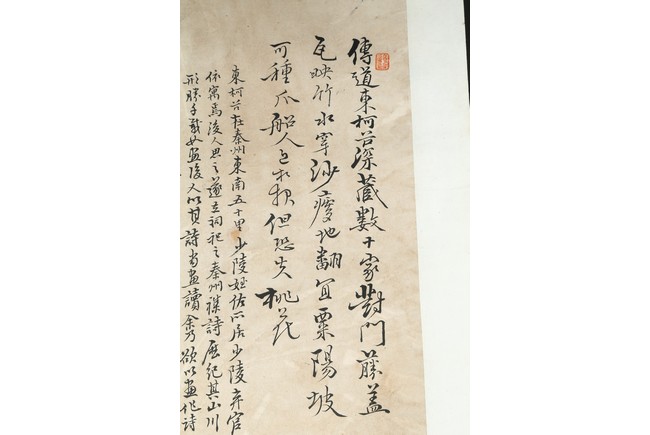 傳道東柯谷深藏數十家對門藤蓋
瓦映竹水穿沙瘦地翻宜粟陽坡
可種瓜船人近相報但恐失桃花
東柯谷在秦州東南五十里少陵姪佐所居少陵弃官
依寓焉後人思之遂立祠祀之秦州雜詩歷紀其山川
形勝千載如後人以其詩當畫讀余乃欲以畫作詩